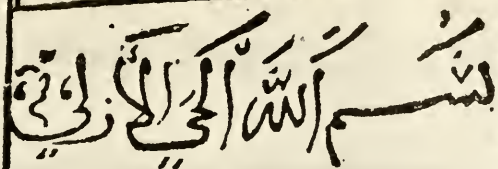 بسم الله الحي الأزلي